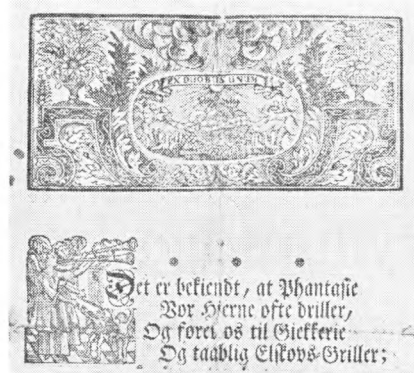 Det er bekiendt, at Phantasie
Vor Hierne ofte driller,
Og fører os til Giekkerie
Og taablig Elskovs-Griller;